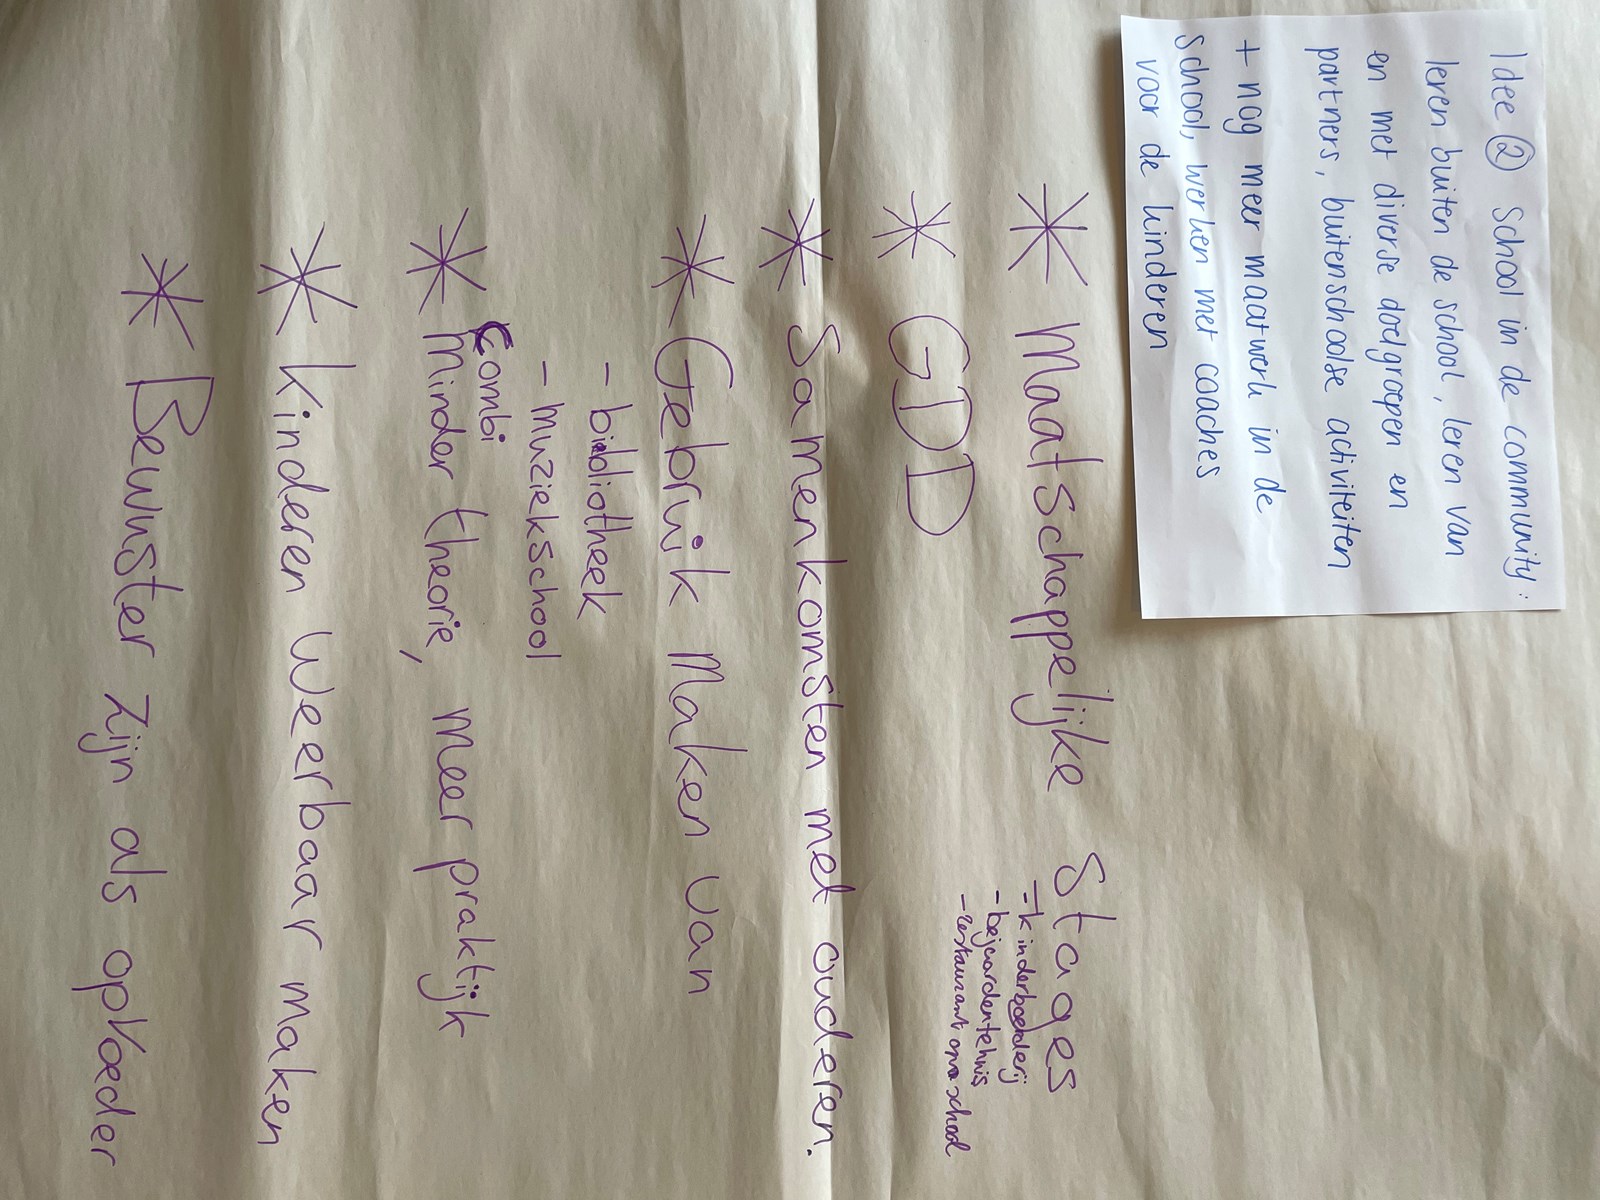 Idee ② School in de community:
leren buiten de school, leren van
en met diverse doelgroepen en
partners, buitenschoolse activiteiten
+ nog meer maatwerk in de
school, werken met coaches
voor de kinderen
* Maatschappelijke Stages
- kinderboerderij
- bejaardentehuis
- restaurant op school
* GDD
* Samenkomsten met ouderen.
* Gebruik Maken van
- bibliotheek
- muziekschool
Combi
* Minder theorie, meer praktijk
* Kinderen Weerbaar maken
* Bewuster zijn als opvoeder